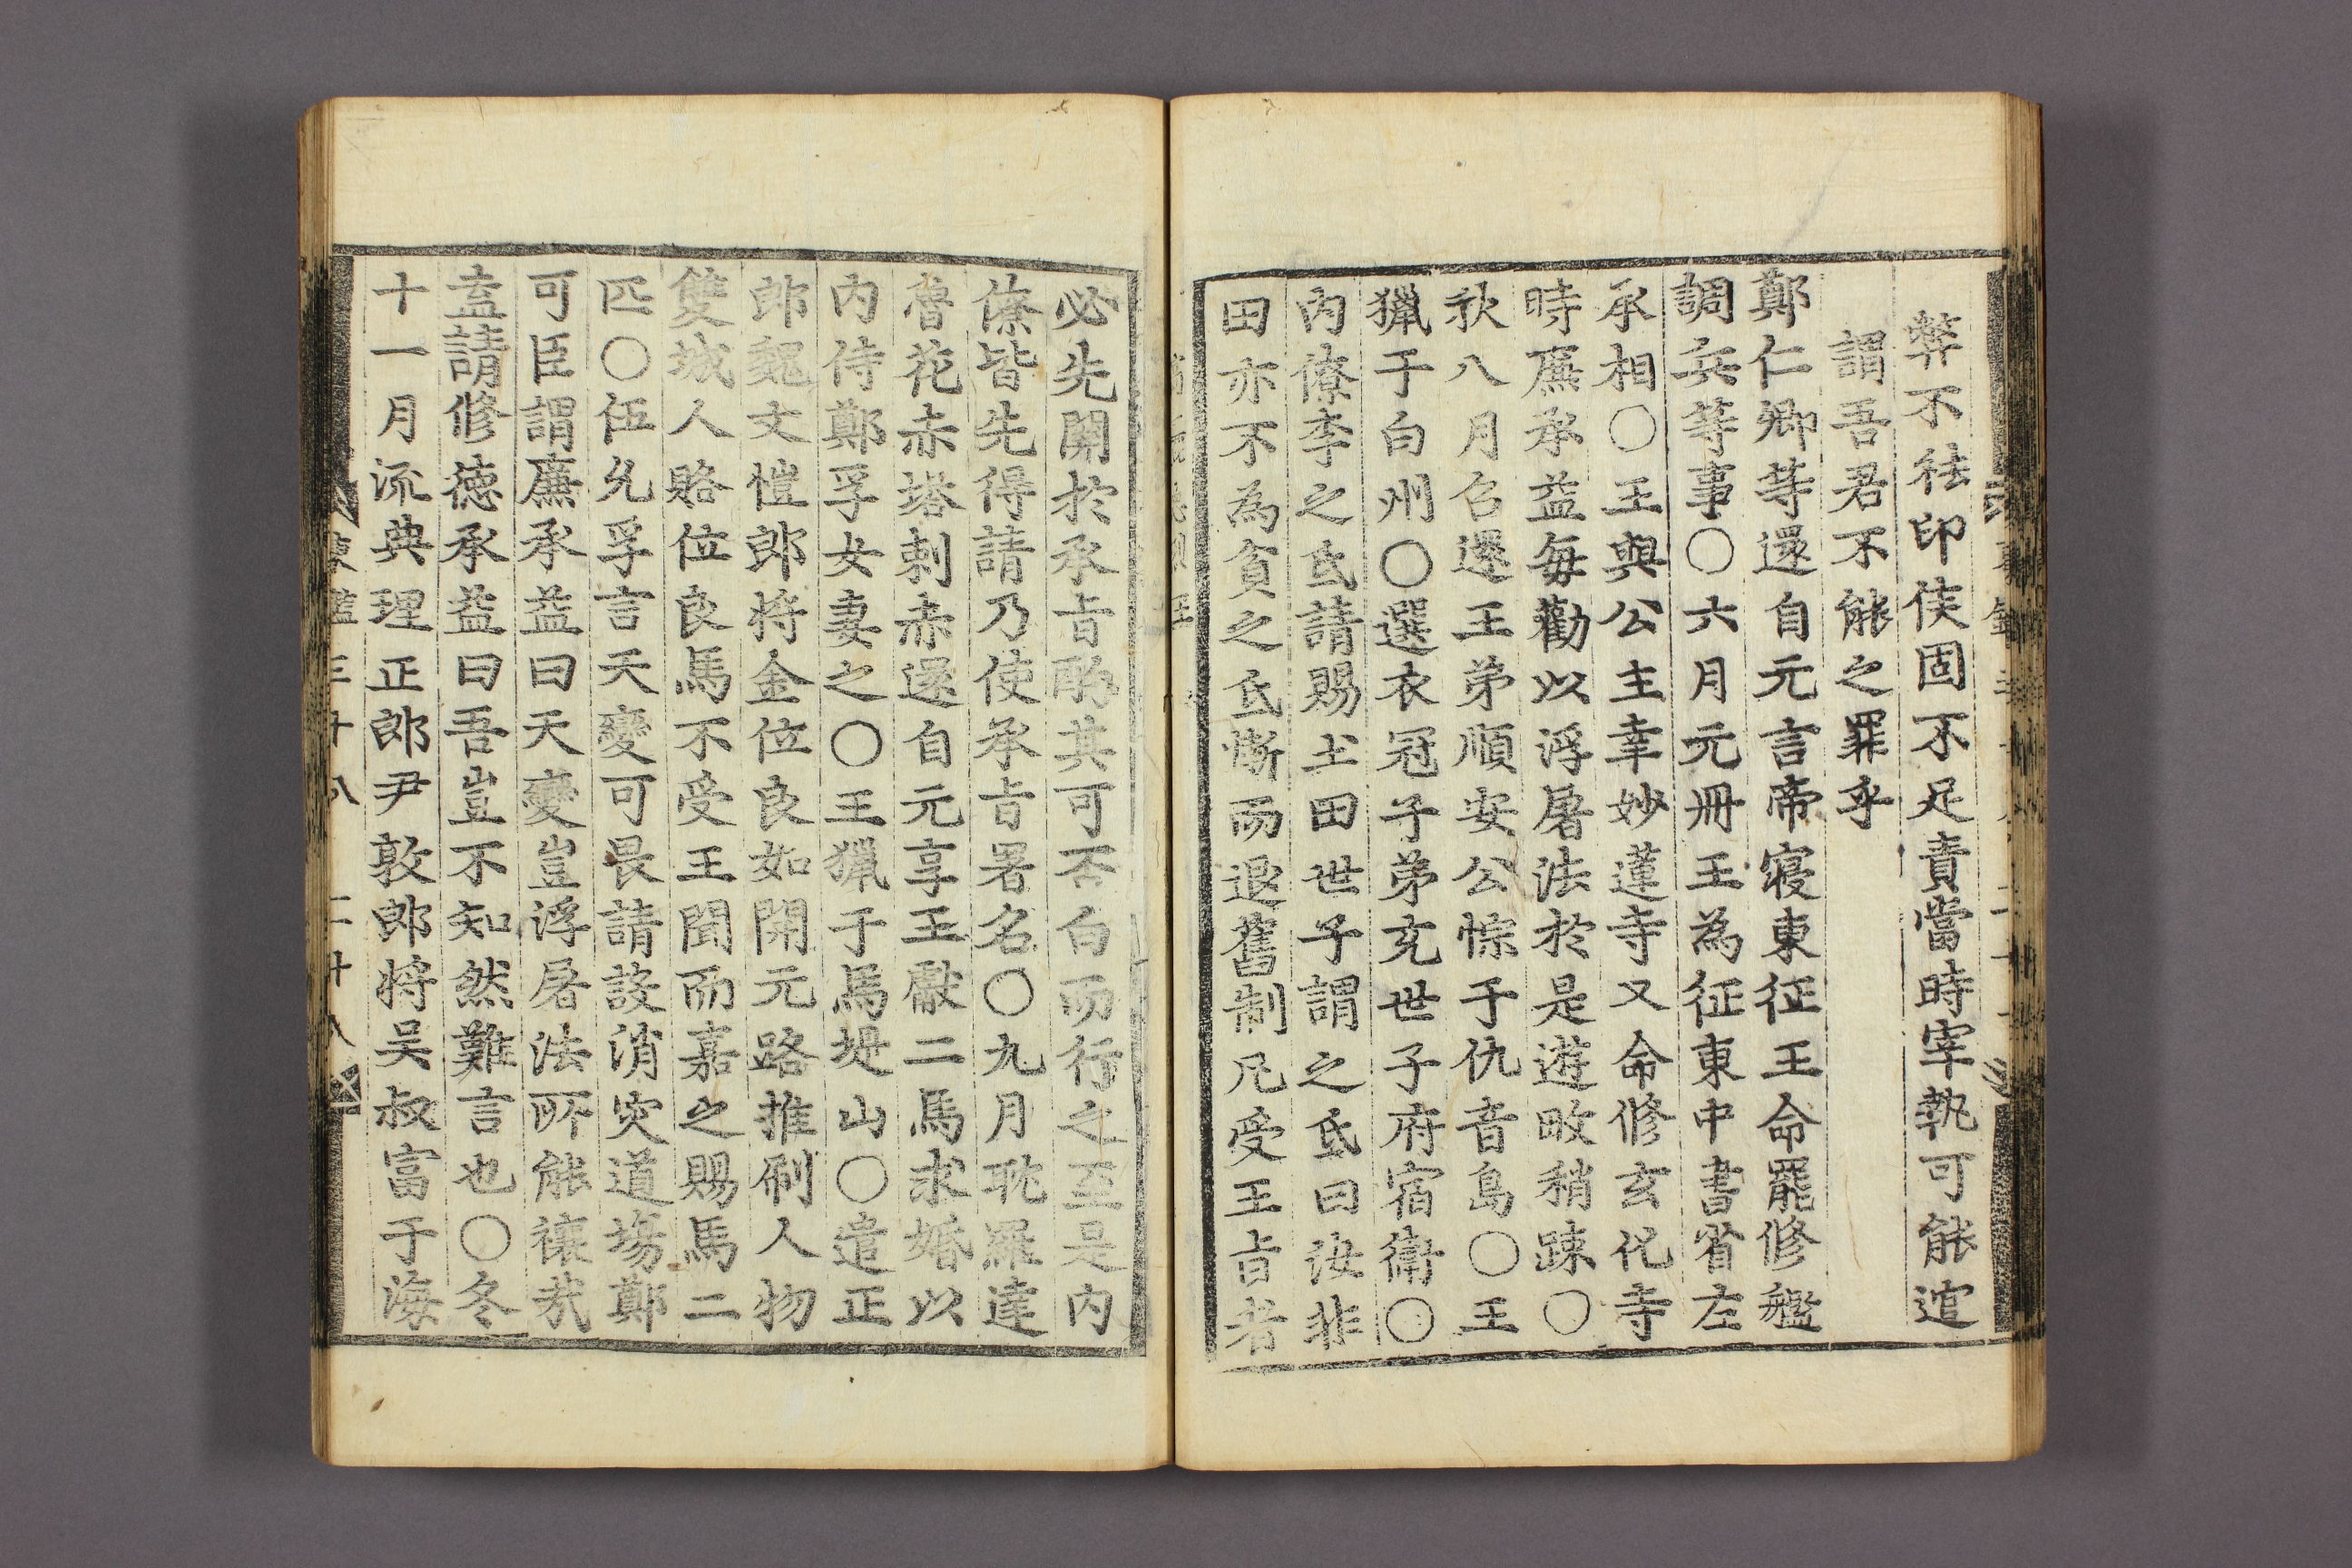 弊不祛印侯固不足責當時宰執可能逭
謂吾君不能之罪乎
鄭仁卿等還自元言帝寢東征王命罷修艦
調兵等事○六月元冊王為征東中書省左
承相○王與公主幸妙蓮寺又命修玄化寺
時廉承益每勸以浮屠法於是遊畋稍踈○
秋八月召還王弟順安公悰于仇音島○王
獵于白州○選衣冠子弟充世子府宿衛○
內僚李之氐請賜土田世子謂之氐曰汝非
田亦不為貧之氐慚而退舊制凡受王旨者
必先關於承旨酌其可否白而行之至是內
僚皆先得請乃使承旨署名○九月耽羅達
魯花赤塔剌赤還自元享王獻二馬求婚以
內侍鄭孚女妻之○王獵于馬堤山○遣正
郎魏文愷郎將金位良如開元路推刷人物
雙城人賂位良馬不受王聞而嘉之賜馬二
匹○伍允孚言天變可畏請設消災道場鄭
可臣謂廉承益曰天變豈浮屠法所能禳哉
盍請修德承益曰吾豈不知然難言也○冬
十一月流典理正郎尹敦郎將吴叔富于海
東鑑三十八 二十八